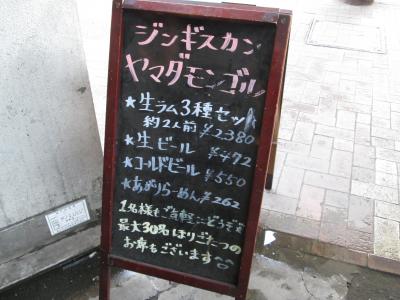 ジンギスカン
ヤマダモンゴル
★生ラム3種セット
約2人前 ¥2,380
★生ビール ¥472
★コールドビール ¥550
★あがりらーめん ¥262
1名様もご気軽にどうぞ
最大30名ほりごたつの
お席もございます